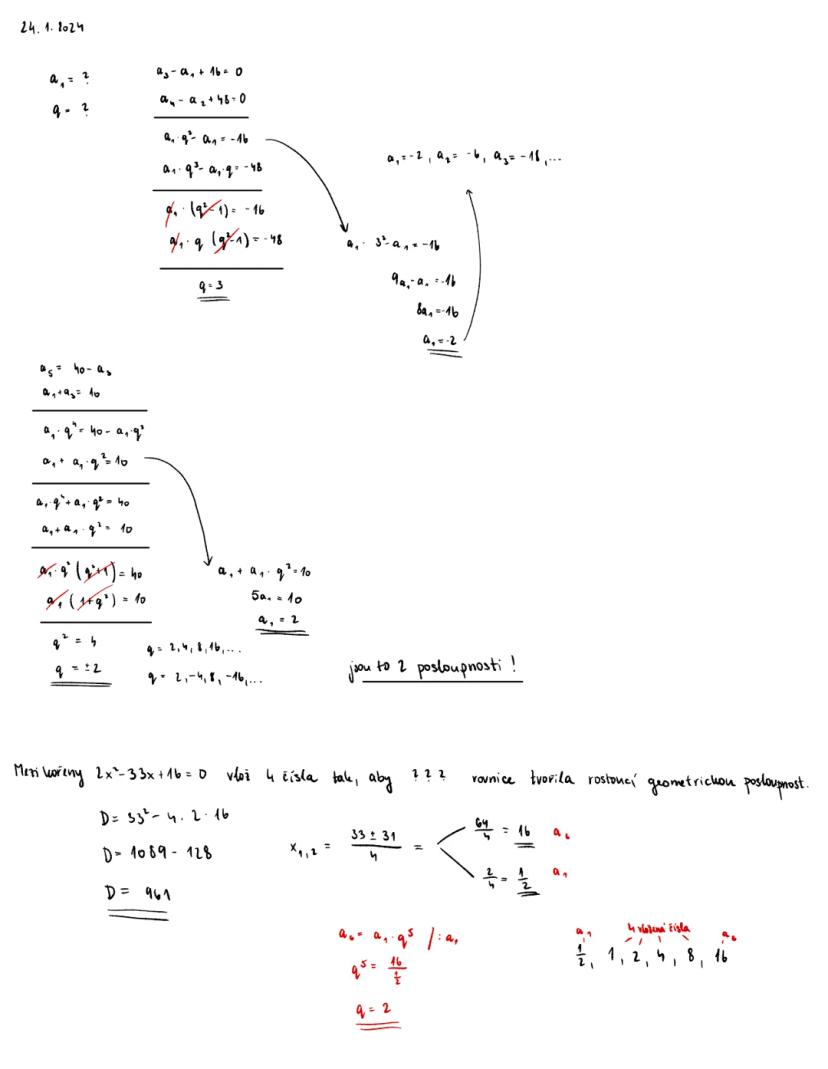 24. 1. 2024
a₁ = ?
q = ?
a₃ - a₁ + 16 = 0
a₄ - a₂ + 48 = 0
a₁ · q² - a₁ = -16
a₁ · q³ - a₁ · q = -48
a₁ · (q² - 1) = -16
a₁ · q (q² - 1) = -48
q = 3
a₁ · 3² - a₁ = -16
9a₁ - a₁ = -16
8a₁ = -16
a₁ = -2
a₁ = -2, a₂ = -6, a₃ = -18, ...
a₅ = 40 - a₃
a₁ + a₃ = 10
a₁ · q⁴ = 40 - a₁ · q²
a₁ + a₁ · q² = 10
a₁ · q⁴ + a₁ · q² = 40
a₁ + a₁ · q² = 10
a₁ · q² (q² + 1) = 40
a₁ (1 + q²) = 10
q² = 4
q = ±2
a₁ + a₁ · q² = 10
5a₁ = 10
a₁ = 2
q = 2, 4, 8, 16, ...
q = 2, -4, 8, -16, ...
jsou to 2 posloupnosti !
Mezi kořeny 2x² - 33x + 16 = 0 vlož 4 čísla tak, aby ? ? ? rovnice tvořila rostoucí geometrickou posloupnost.
D = 33² - 4 . 2 · 16
D = 1089 - 128
D = 961
x₁,₂ = (33 ± 31)/4 =
64/4 = 16 a₆
2/4 = 1/2 a₁
a₆ = a₁ · q⁵ / : a₁
q⁵ = 16/(1/2)
q = 2
a₁ 4 vložená čísla a₆
1/2, 1, 2, 4, 8, 16